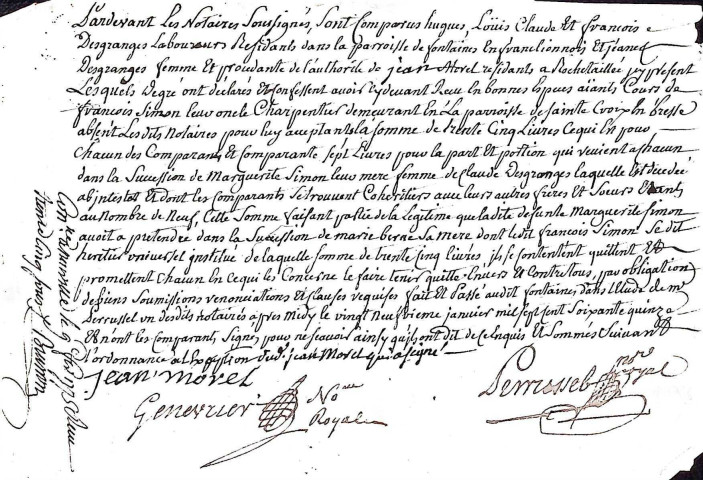 Pardevant Les Notaires Soussignés, Sont Comparus hugues, Loüis Claude Et françois
Desgranges Laboureurs Residants dans la parroisse de fontaines En franclionnois, Et jeanne
Desgranges femme Et procedante de l'authorité de jean Morel residants a Rochetaillée icy present
Lesquels de gre ont declarés Et Confessent avoir cy devant Reçu En bonnes Especes aiants Cours de
françois Simon leur oncle Charpentier demeurant En La parroisse de Sainte Croix En bresse
absent Les dits Notaires pour luy acceptants la Somme de trente Cinq Livres Ce qui Est pour
Chacun des Comparants Et Comparante Sept Livres pour la part Et portion qui revient a chacun
dans la Succession de Marguerite Simon leur mere femme de Claude Desgranges laquelle Est decedée
abintestat Et dont les Comparants Se trouvent Coheritiers avec leurs autres freres Et Soeurs Etants
au Nombre de Neuf, Cette Somme faisant partie de la Legitime que ladite defunte Marguerite Simon
avoit a pretendre dans la Succession de marie berne Sa mere dont ledit françois Simon Se dit
heritier universel institué de laquelle Somme de trente Cinq livres ils Se Contentent quittent Et
promettent Chacun En Ce qui Les Concerne le faire tenir quitte Envers Et Contre tous, par obligation
de biens Soumissions renonciations Et clauses requises fait Et Passé audit fontaines dans l'Etude de Me
Perrussel un desdits notaires apres midy le vingt Neufvieme janvier mil Sept Cent Soixante quinze
Et n'ont les Comparants Signés pour ne Scavoir ainsy qu'ils ont dit de Ce Enquis Et Sommés Suivant
L'ordonnance a l'Exception dudit jean Morel qui a Signé
jean morel
Genevrier No.re
Royal
Perrussel n.re
royal